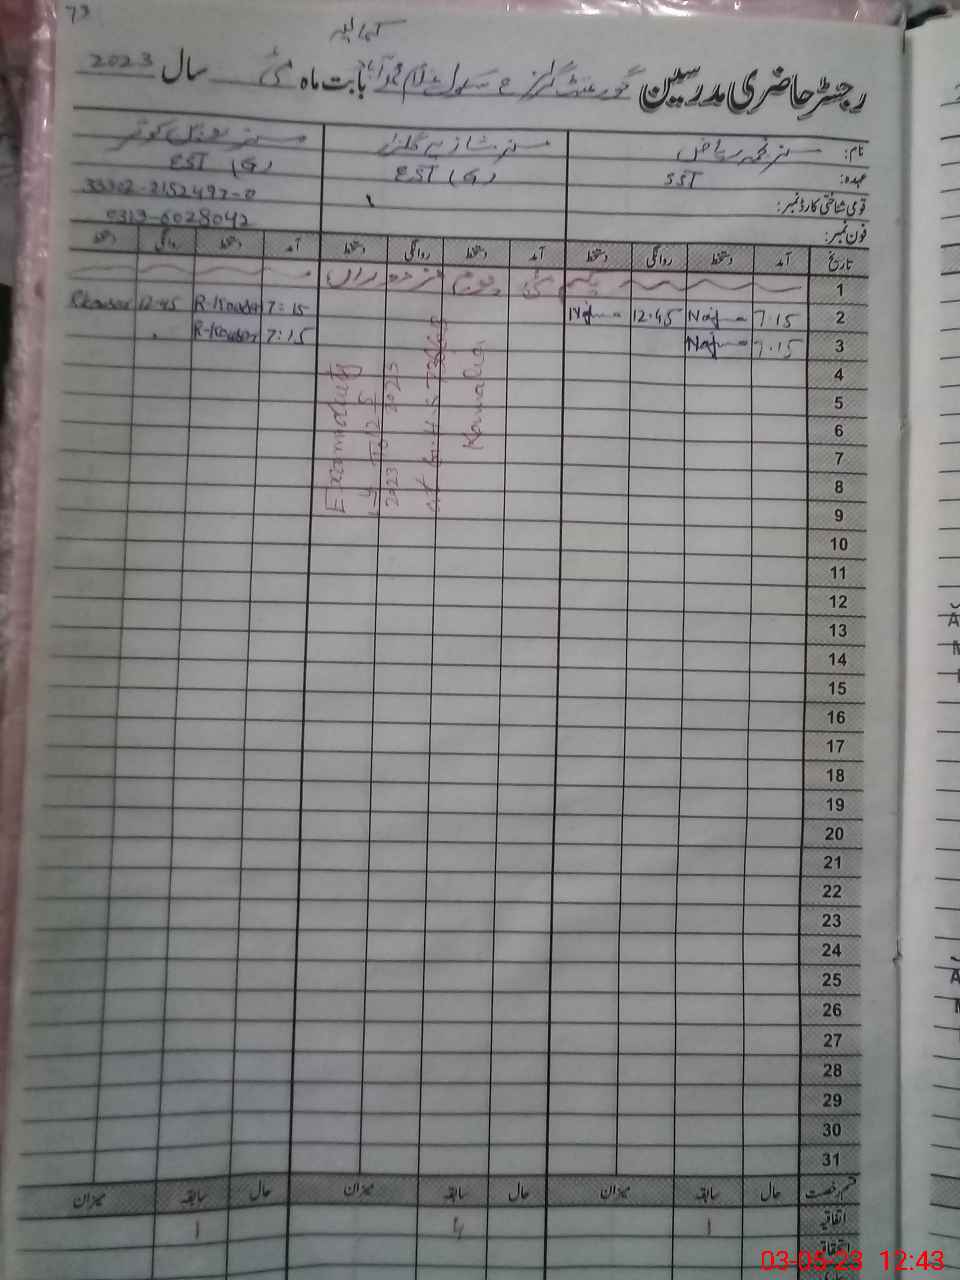 73
کمالیہ
رجسٹر حاضری مدرسین گورنمنٹ گرلز سکول بابت ماہ مئی سال 2023
نام: مسز نجمہ ریاض مسز شازیہ گلزار مسز کوثر
عہدہ: SST EST EST
قومی شناختی کارڈ نمبر: 33302-2152497-0
فون نمبر: 0313-6028042
تاریخ آمد دستخط روانگی دستخط آمد دستخط روانگی دستخط آمد دستخط روانگی دستخط
1 یکم مئی یوم مزدوراں
2 7:15 Najma 12:45 Najma 7:15 R-Kousar 12:45 R kousar
3 7:15 Najma 7:15 R-Kousar
4
5
6
7
8
9
10
11
12
13
14
15
16
17
18
19
20
21
22
23
24
25
26
27
28
29
30
31
Examination duty
2023 2023
Kamalia
قسم رخصت حال سابقہ میزان حال سابقہ میزان حال سابقہ میزان
اتفاقیہ 1 4 1
استحقاقیہ
03-05-23 12:43